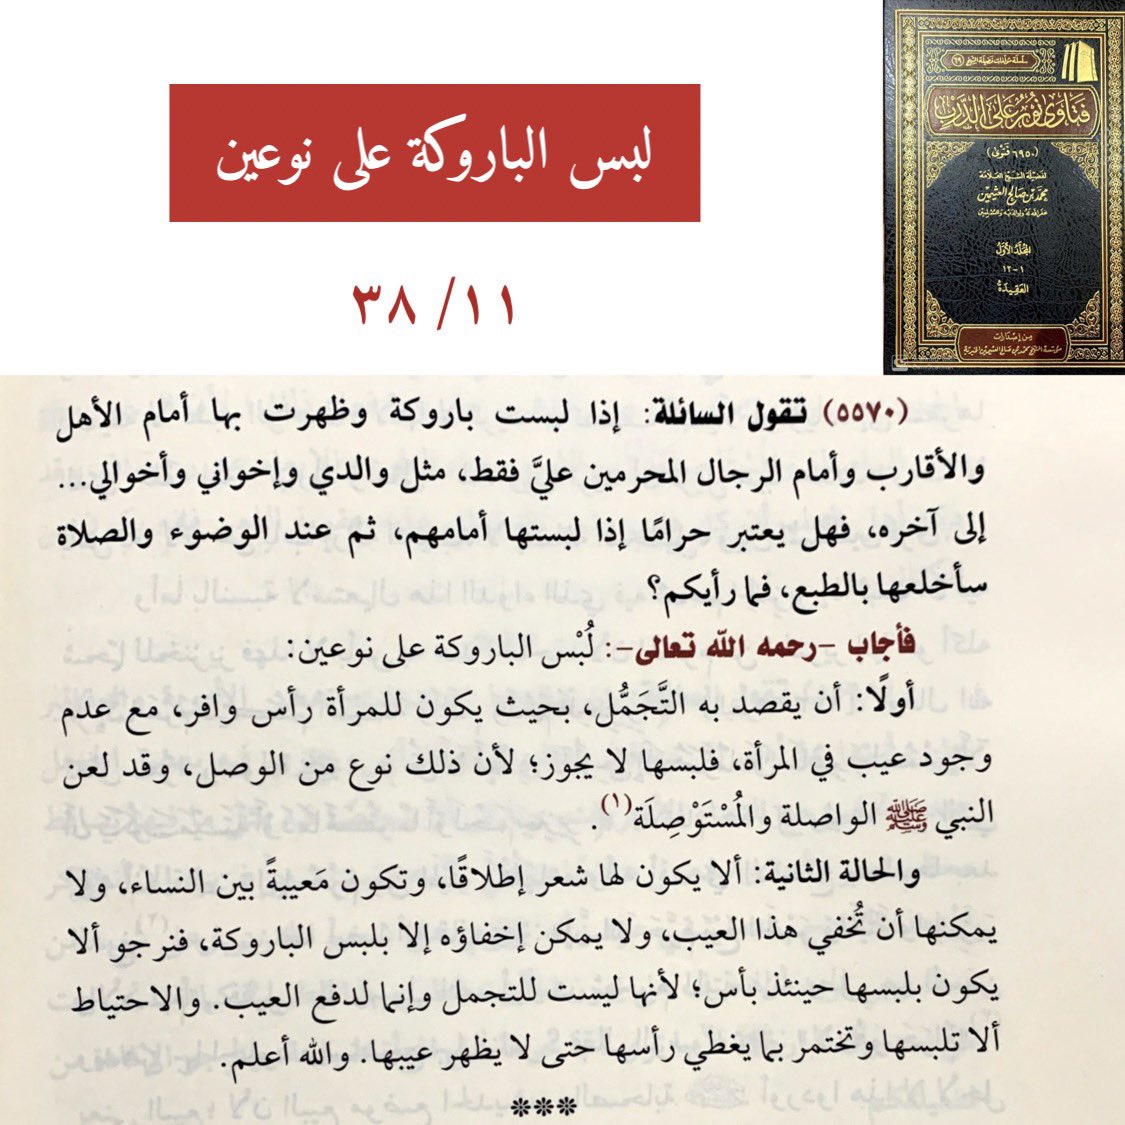 لبس الباروكة على نوعين
١١/ ٣٨
سلسلة مؤلفات فضيلة الشيخ (٦٩)
فتاوى نور على الدرب
(٦٩٥٠ فتوى)
لفضيلة الشيخ العلامة
محمد بن صالح العثيمين
غفر الله له ولوالديه وللمسلمين
المجلد الأول
١-١٢
العقيدة
من إصدارات
مؤسسة الشيخ محمد بن صالح العثيمين الخيرية
(٥٥٧٠) تقول السائلة: إذا لبست باروكة وظهرت بها أمام الأهل
والأقارب وأمام الرجال المحرمين عليَّ فقط، مثل والدي وإخواني وأخوالي...
إلى آخره، فهل يعتبر حرامًا إذا لبستها أمامهم، ثم عند الوضوء والصلاة
سأخلعها بالطبع، فما رأيكم؟
فأجاب -رحمه الله تعالى-: لُبْس الباروكة على نوعين:
أولًا: أن يقصد به التَّجَمُّل، بحيث يكون للمرأة رأس وافر، مع عدم
وجود عيب في المرأة، فلبسها لا يجوز؛ لأن ذلك نوع من الوصل، وقد لعن
النبي ﷺ الواصلة والمُسْتَوْصِلَة(١).
والحالة الثانية: ألا يكون لها شعر إطلاقًا، وتكون مَعيبةً بين النساء، ولا
يمكنها أن تُخفي هذا العيب، ولا يمكن إخفاؤه إلا بلبس الباروكة، فنرجو ألا
يكون بلبسها حينئذ بأس؛ لأنها ليست للتجمل وإنما لدفع العيب. والاحتياط
ألا تلبسها وتختمر بما يغطي رأسها حتى لا يظهر عيبها. والله أعلم.
***